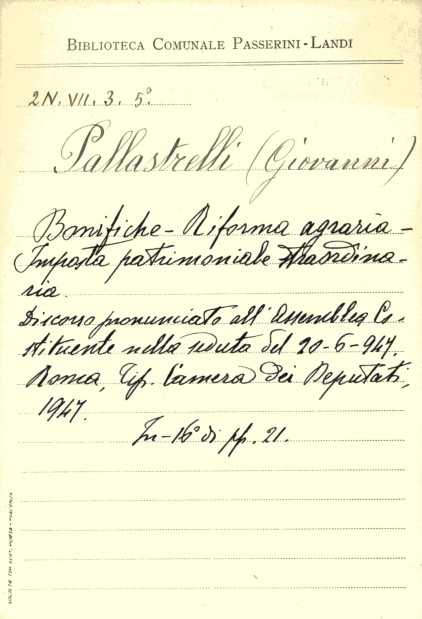 BIBLIOTECA COMUNALE PASSERINI-LANDI
2N. VII. 3. 5°.
Pallastrelli (Giovanni)
Bonifiche - Riforma agraria -
Imposta patrimoniale straordina-
ria.
Discorso pronunciato all'Assemblea Co-
stituente nella seduta del 20-6-947.
Roma, Tip. Camera dei Deputati,
1947.
In-16° di pp. 21.